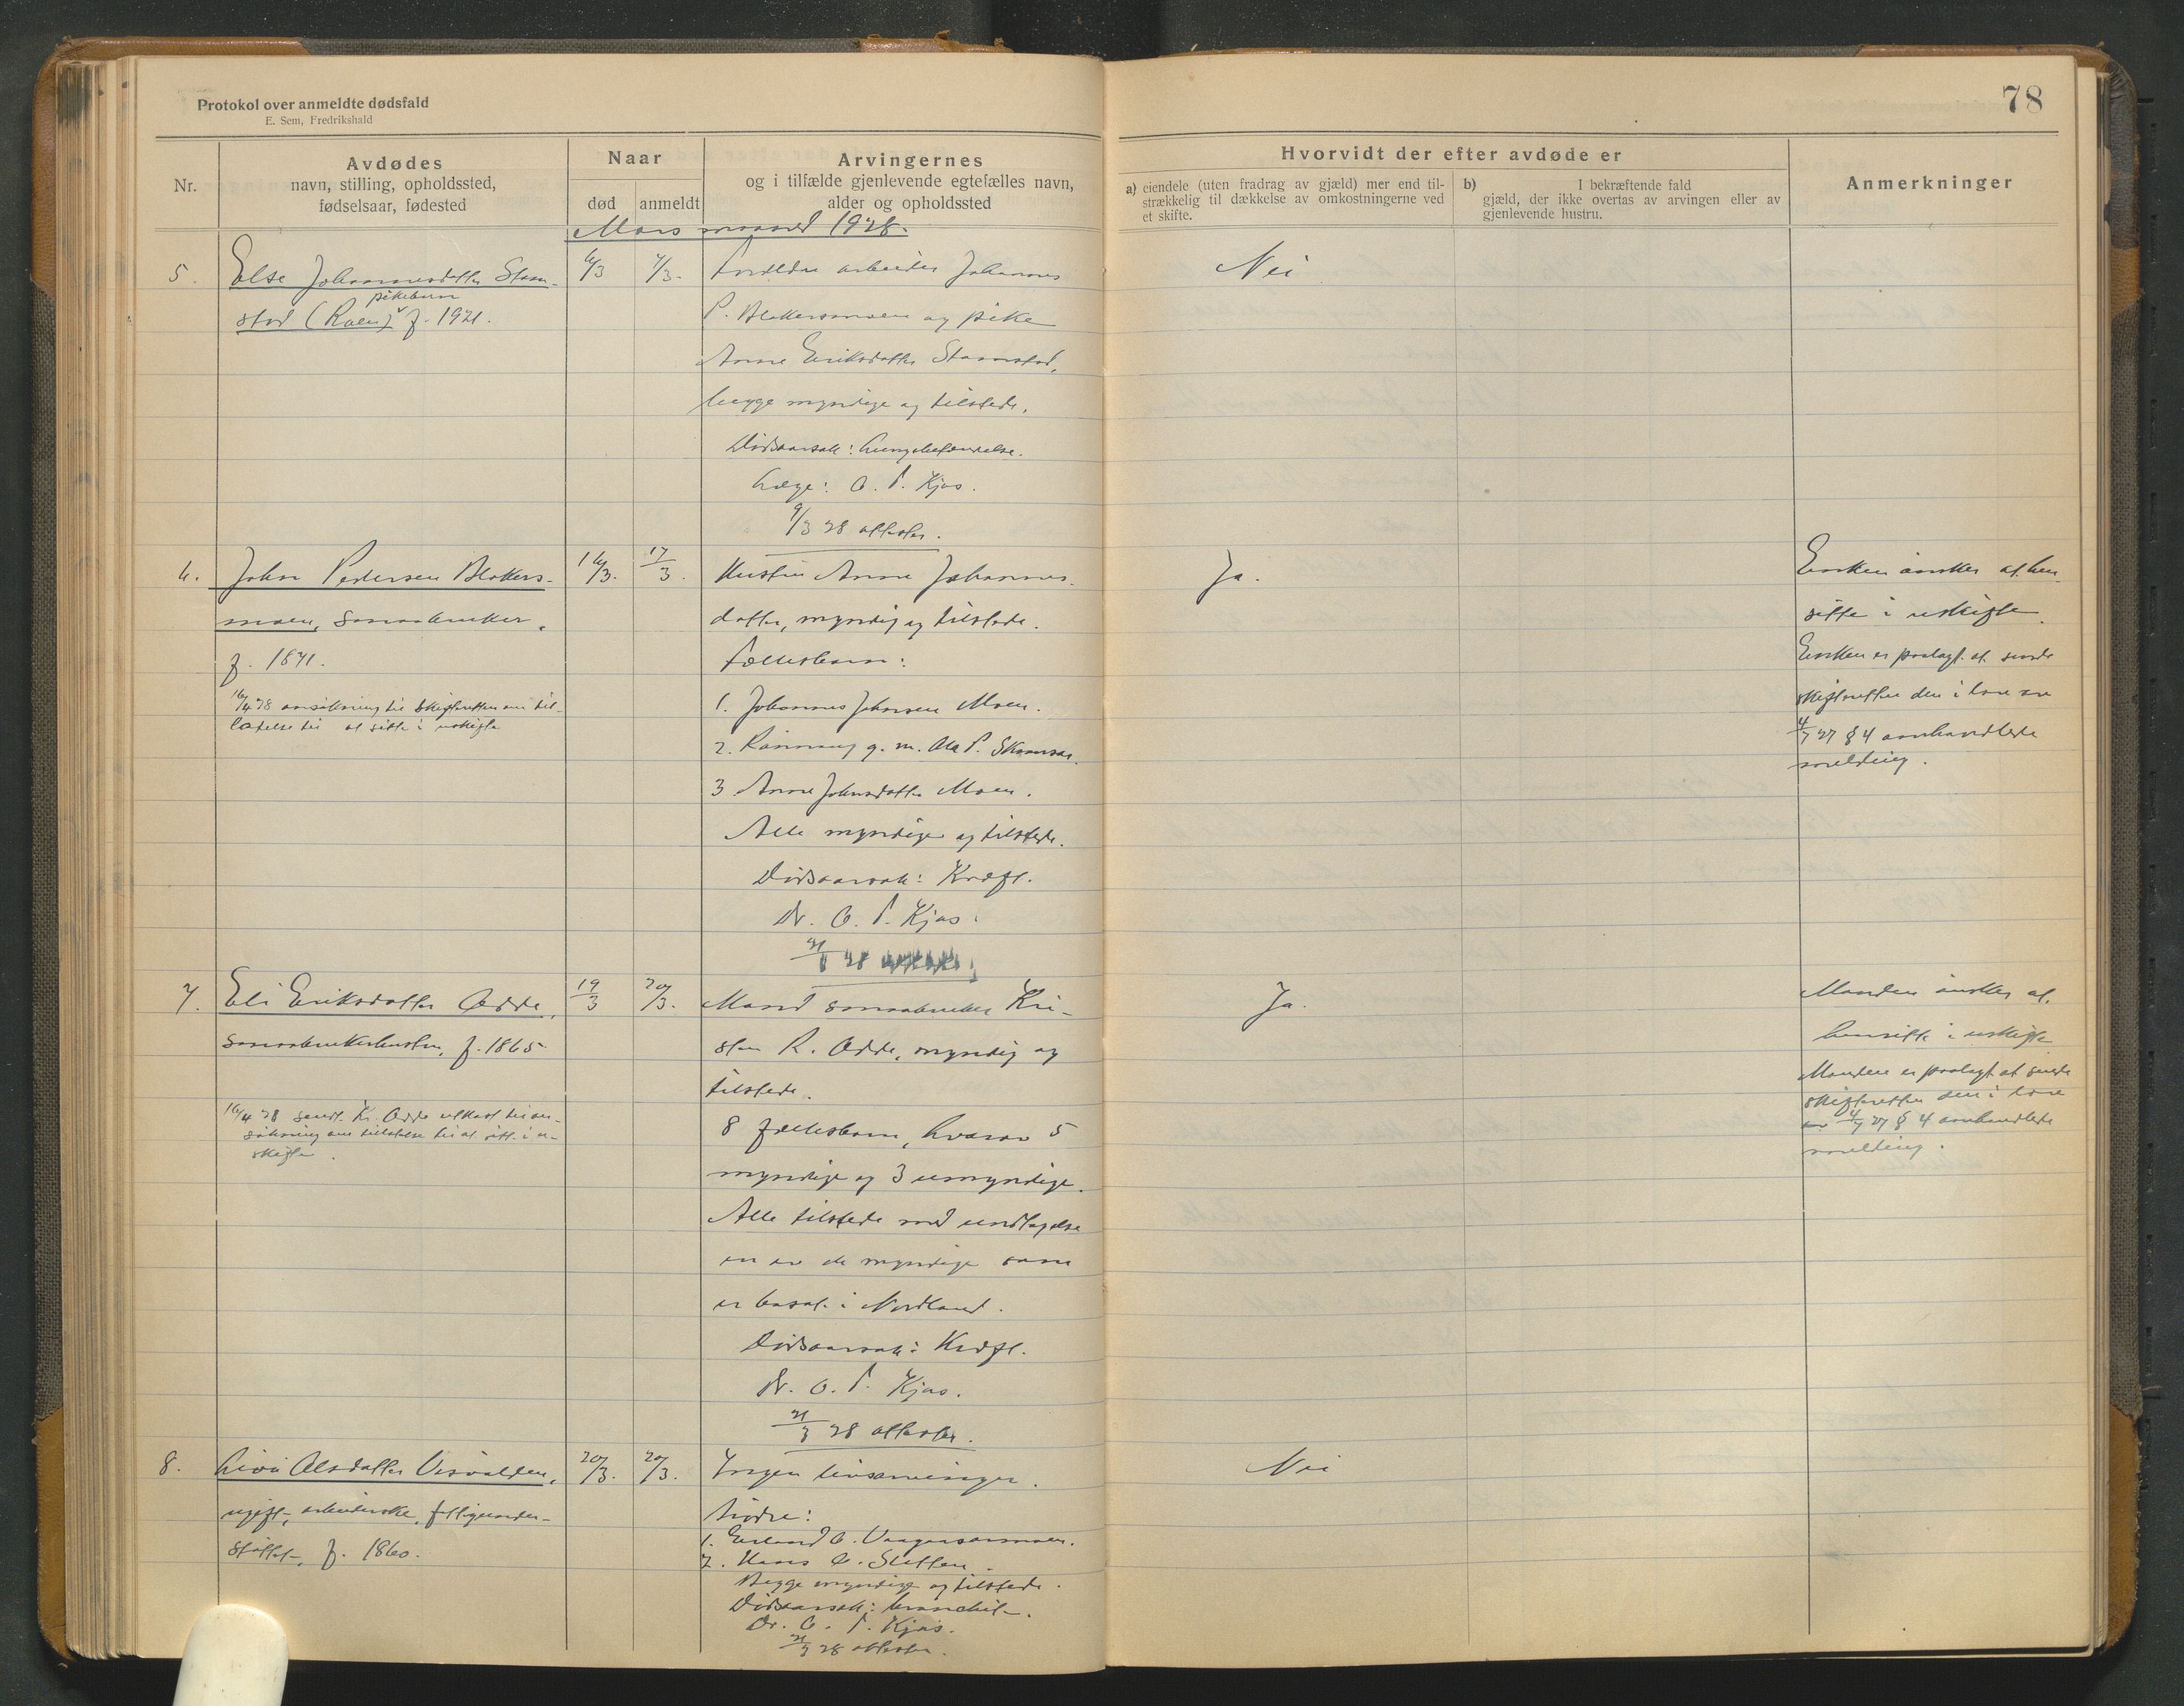 Protokol over anmeldte dødsfald
E. Sem, Fredrikshald
78
Nr.
Avdødes
navn, stilling, opholdssted,
fødselsaar, fødested
Naar
død
anmeldt
Arvingernes
og i tilfælde gjenlevende egtefælles navn,
alder og opholdssted
Hvorvidt der efter avdøde er
a) eiendele (uten fradrag av gjæld) mer end til-
strækkelig til dækkelse av omkostningerne ved
et skifte.
b) I bekræftende fald
gjæld, der ikke overtas av arvingen eller av
gjenlevende hustru.
Anmerkninger
Mars maaned 1928.
5. Else Johannesdatter Stam-
pikebarn
stad (Roen) f. 1921.
6/3 7/3.
Foreldre arbeider Johannes
P. Blakersmoen og pike
Anne Eriksdatter Stamstad,
begge myndige og tilstede.
Dødsaarsak: Lungebetændelse.
Læge: O. P. Kjos.
9/3 28 attester.
Nei
6. John Pedersen Blakers-
moen, gaardbruker,
f. 1871.
16/4 28 ansökning til skifteretten om til-
latelse til at sitte i uskifte
16/3. 17/3.
Hustru Anne Johannes-
datter, myndig og tilstede.
Fællesbarn:
1. Johannes Johnsen Moen.
2. Rönnaug g. m. Ola P. Skamsar.
3 Anne Johnsdatter Moen.
Alle myndige og tilstede.
Dødsaarsak: Kræft.
Dr. O. P. Kjos.
28
Ja.
Enken önsker at hen-
sitte i uskifte.
Enken er paalagt at sende
skifteretten den i lov av
4/7 27 § 4 omhandlede
melding.
7. Eli Eriksdatter Odde,
gaardbrukerhustru, f. 1865
16/4 28 sendt Kr. Odde utkast til an-
sökning om tillatelse til at sitte i u-
skifte.
19/3 20/3.
Mand gaardbruker Kri-
sten R. Odde, myndig og
tilstede.
8 fællesbarn, hvorav 5
myndige og 3 umyndige.
Alle tilstede med undtagelse
en av de myndige som
er bosat i Nordland.
Dødsaarsak: Kræft.
Dr. O. P. Kjos.
21/3 28 attester.
Ja.
Manden önsker at
hensitte i uskifte
Manden er paalagt at sende
skifteretten den i lov
av 4/7 27 § 4 omhandlede
melding.
8. Livä Olsdatter Visvalden,
ugift, arbeiderske, fattigunder-
støttet, f. 1860.
20/3. 20/3.
Ingen livsarvinger.
Brødre:
1. Erland O. Vaagaarmoen.
2. Hans O. Sletten.
Begge myndige og tilstede.
Dødsaarsak: bronchit.
Dr. O. P. Kjos.
21/3 28 attester.
Nei